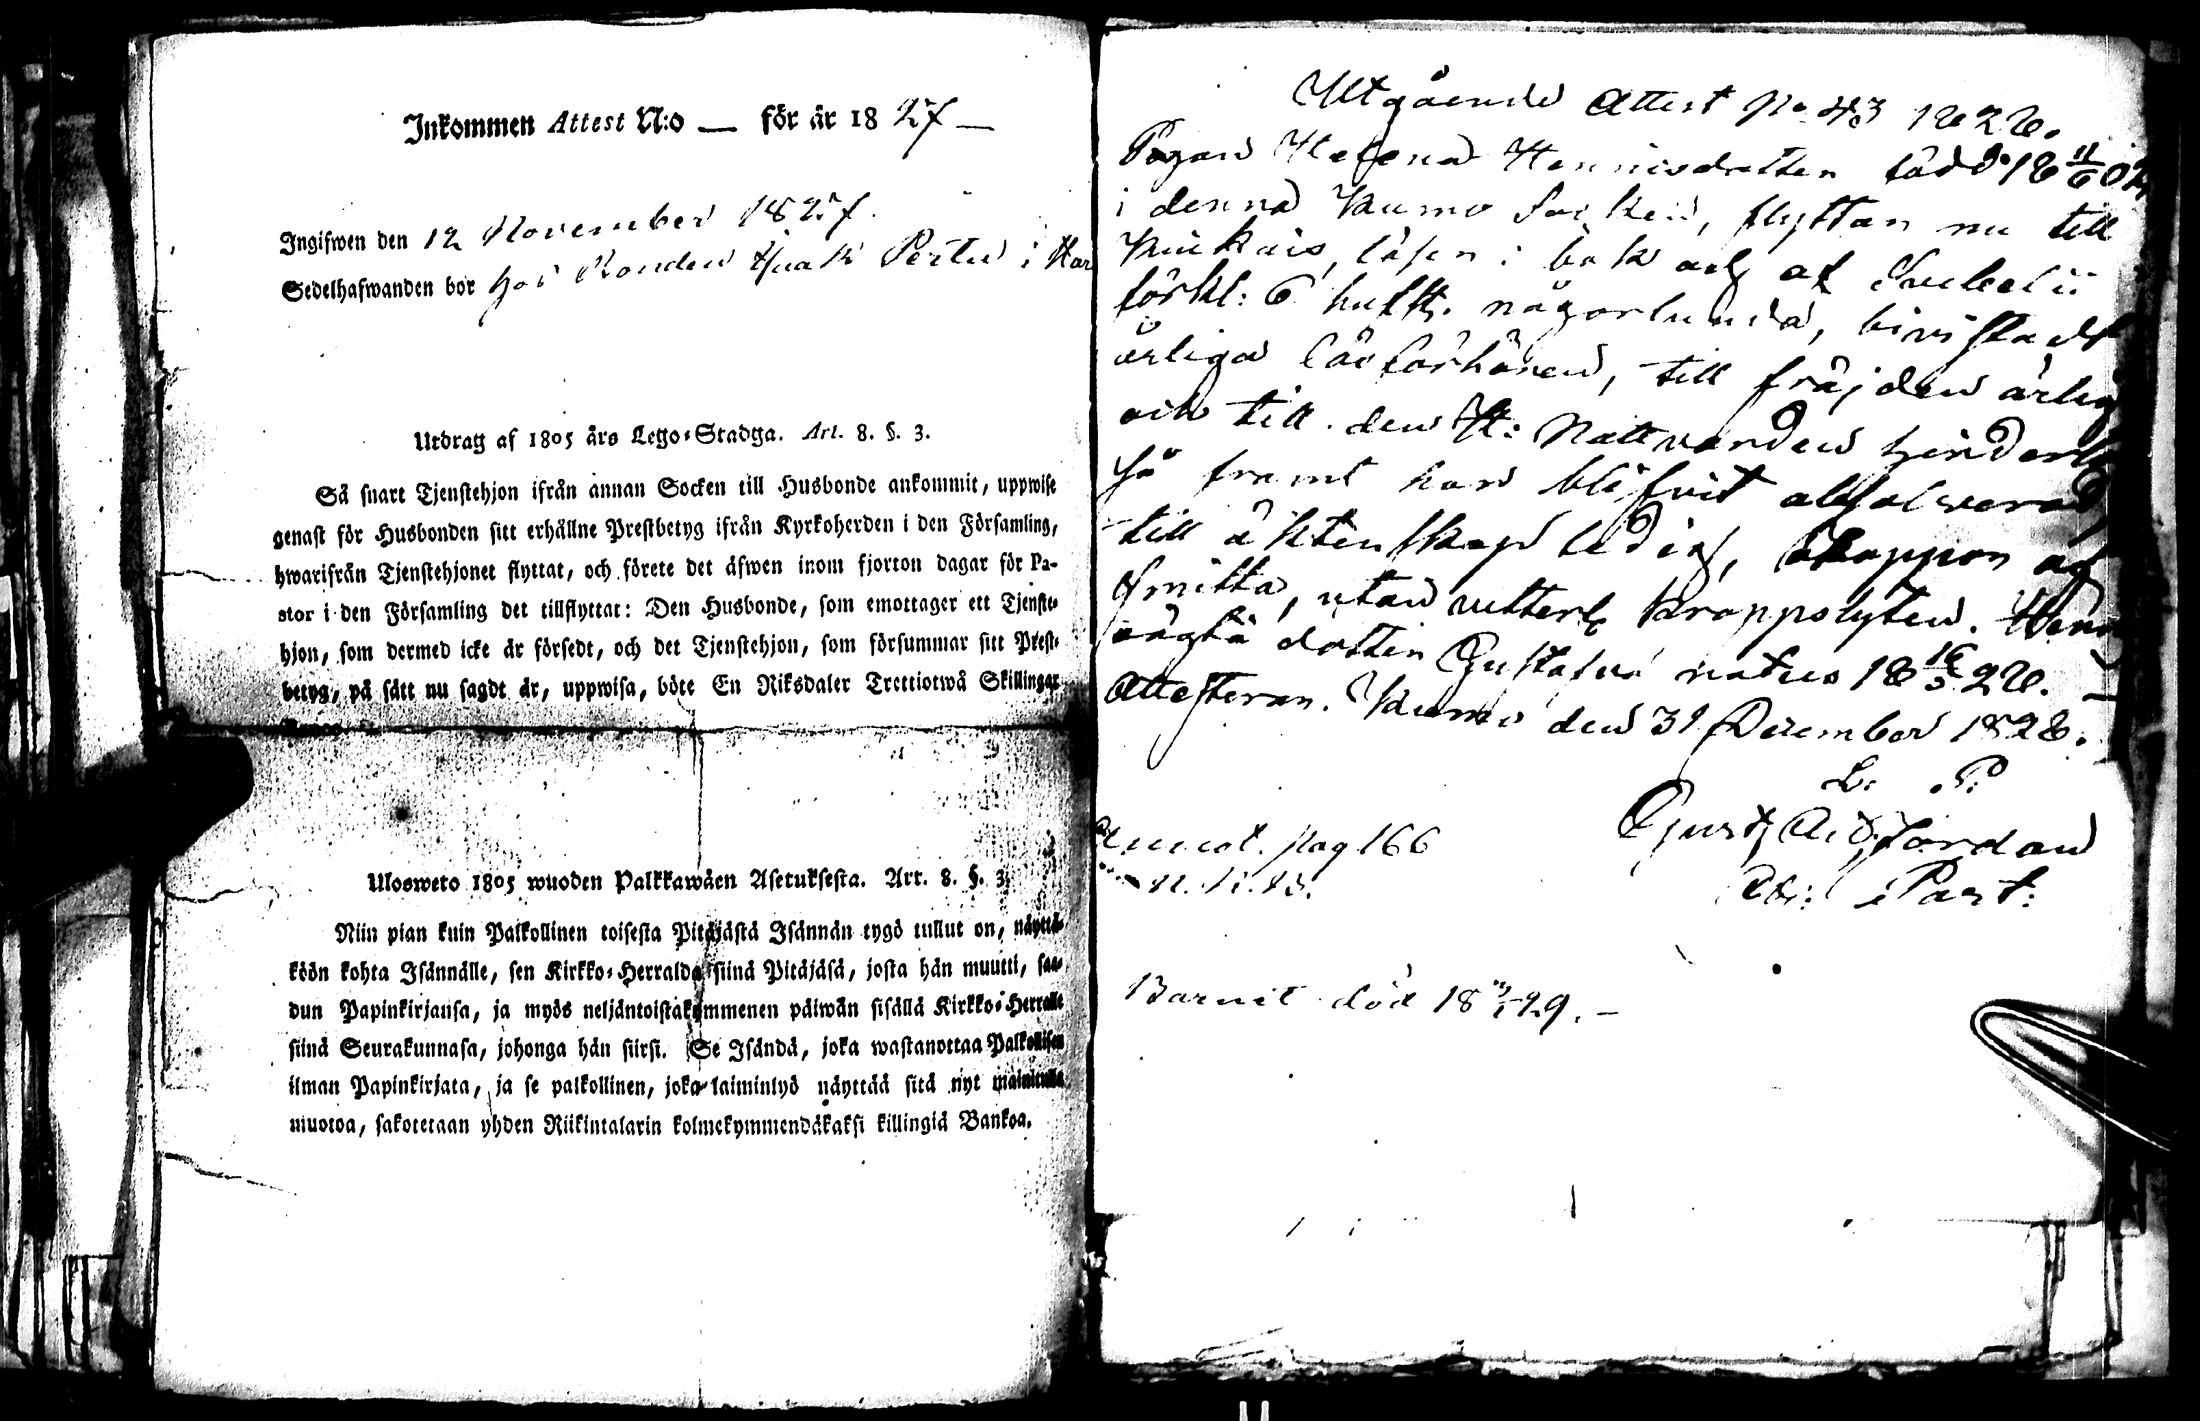 Inkommen Attest N:o — för år 1827 —
Ingifwen den 12 November 1827.
Sedelhafwanden bor hos Bonden Pertu i
Utdrag af 1805 års Lego-Stadga. Art. 8. §. 3.
Så snart Tjenstehjon ifrån annan Socken till Husbonde ankommit, uppwise
genast för Husbonden sitt erhållne Prestbetyg ifrån Kyrkoherden i den Församling,
hwarifrån Tjenstehjonet flyttat, och förete det äfwen inom fjorton dagar för Pa-
stor i den Församling det tillflyttat: Den Husbonde, som emottager ett Tjenste-
hjon, som dermed icke är försedt, och det Tjenstehjon, som försummar sitt Prest-
betyg, på sätt nu sagdt är, uppwisa, böte En Riksdaler Trettiotwå Skillingar
Ulosweto 1805 wuoden Palkkawäen Asetuksesta. Art. 8. §. 3.
Niin pian kuin Palkollinen toisesta Pitäjästä Isännän tygö tullut on, näyttä-
köön kohta Isännälle, sen Kirkko-Herralda siinä Pitäjäsä, josta hän muutti, saa-
dun Papinkirjansa, ja myös neljäntoistakymmenen päiwän sisällä Kirkko-Herralle
siinä Seurakunnasa, johonga hän siirsi. Se Isändä, joka wastanottaa Palkollisen
ilman Papinkirjata, ja se palkollinen, joka laiminlyö näyttää sitä nyt mainitulla
muotoa, sakotetaan yhden Riikintalarin kolmekymmendäkaksi killingiä Bankoa.
Utgående Attest No 43 1828.
Pigan Helena Henricsdotter född 18 11/6 02
i denna Kumo Socken, flyttar nu till
Kiukais, läser i bok och af Svebelii
förkl: 6 hufst. någorlunda, bivistadt
årliga läsförhören, till fräjden ärlig
och till den H: Nattvarden hinderlös
så framt hon blifvit absolverad,
till äktenskap ledig, koppor af
smitta, utan vetterl. kroppslyten. Henne
oägta dotter Gustafva natus 18 16/5 28.
Attesterar. Kumo den 31 December 1828.
L. P.
Gust. Ad. Jordan
Adj: i Past:
Annot. pag 166
Barnet död 18 3/1 29. —